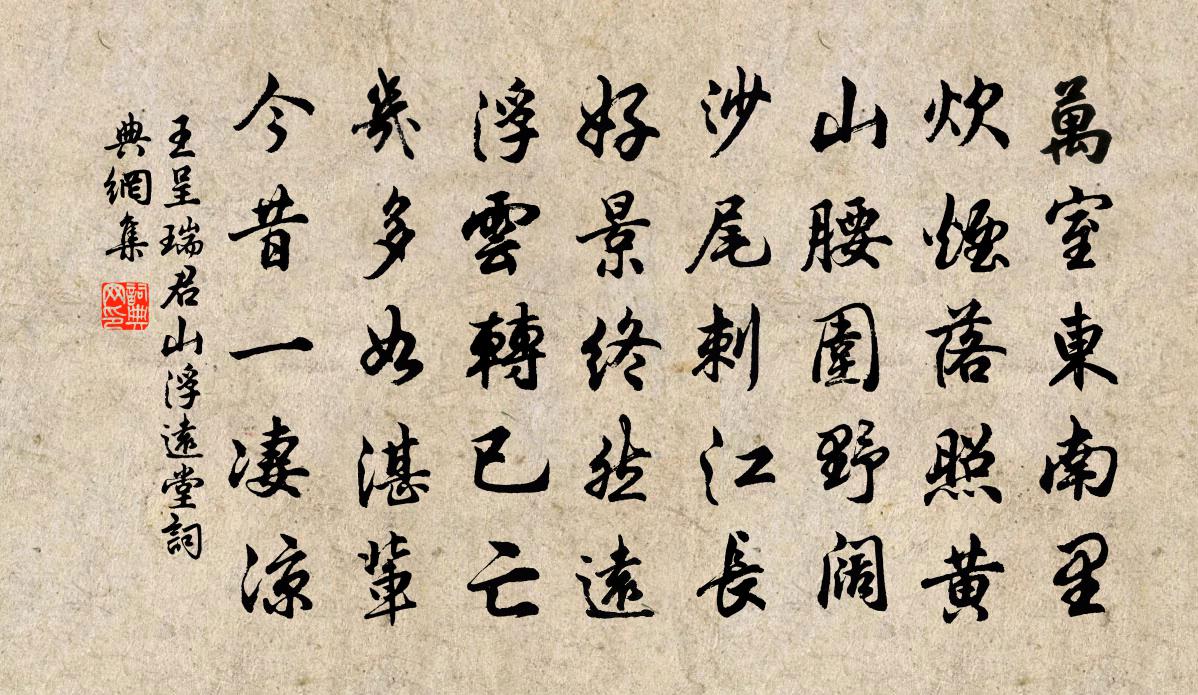 萬室東南里
炊煙落照黃
山腰圍野闊
沙尾刺江長
好景終然遠
浮雲轉已亡
幾多如湛輩
今昔一淒涼
王呈瑞君山浮遠堂詞
典網集
詞典
网印